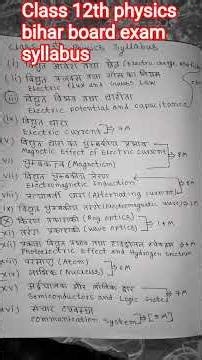 Class 12th physics
bihar board exam
syllabus
Class Physics Syllabus
(i) विद्युत आवेश तथा क्षेत्र (Electric charge and
Electric flux and Gauss's Law
(iii) विद्युत विभव तथा धारिता
Electric potential and capacitance
iv) विद्युत धारा
Electric current → 7M
v) विद्युत धारा का चुम्बकीय प्रभाव
Magnetic Effect of Electric current
vi) चुम्बकत्व (Magnetism)
vii) विद्युत चुम्बकीय प्रेरण
Electromagnetic Induction
viii) प्रत्यावर्ती धारा (Alternating current)
ix) विद्युत चुम्बकीय तरंग (Electromagnetic wave)
x) किरण प्रकाशिकी (Ray optics)
xi) तरंग प्रकाशिकी (wave optics)
xii) प्रकाश विद्युत प्रभाव
Photoelectric Effect and Hydrogen
xiii) परमाणु (Atom)
xiv) नाभिक (Nucleus)
xv) अर्द्धचालक और
Semiconductors and Logic Gates → 7M
xvi) संचार व्यवस्था
communication System